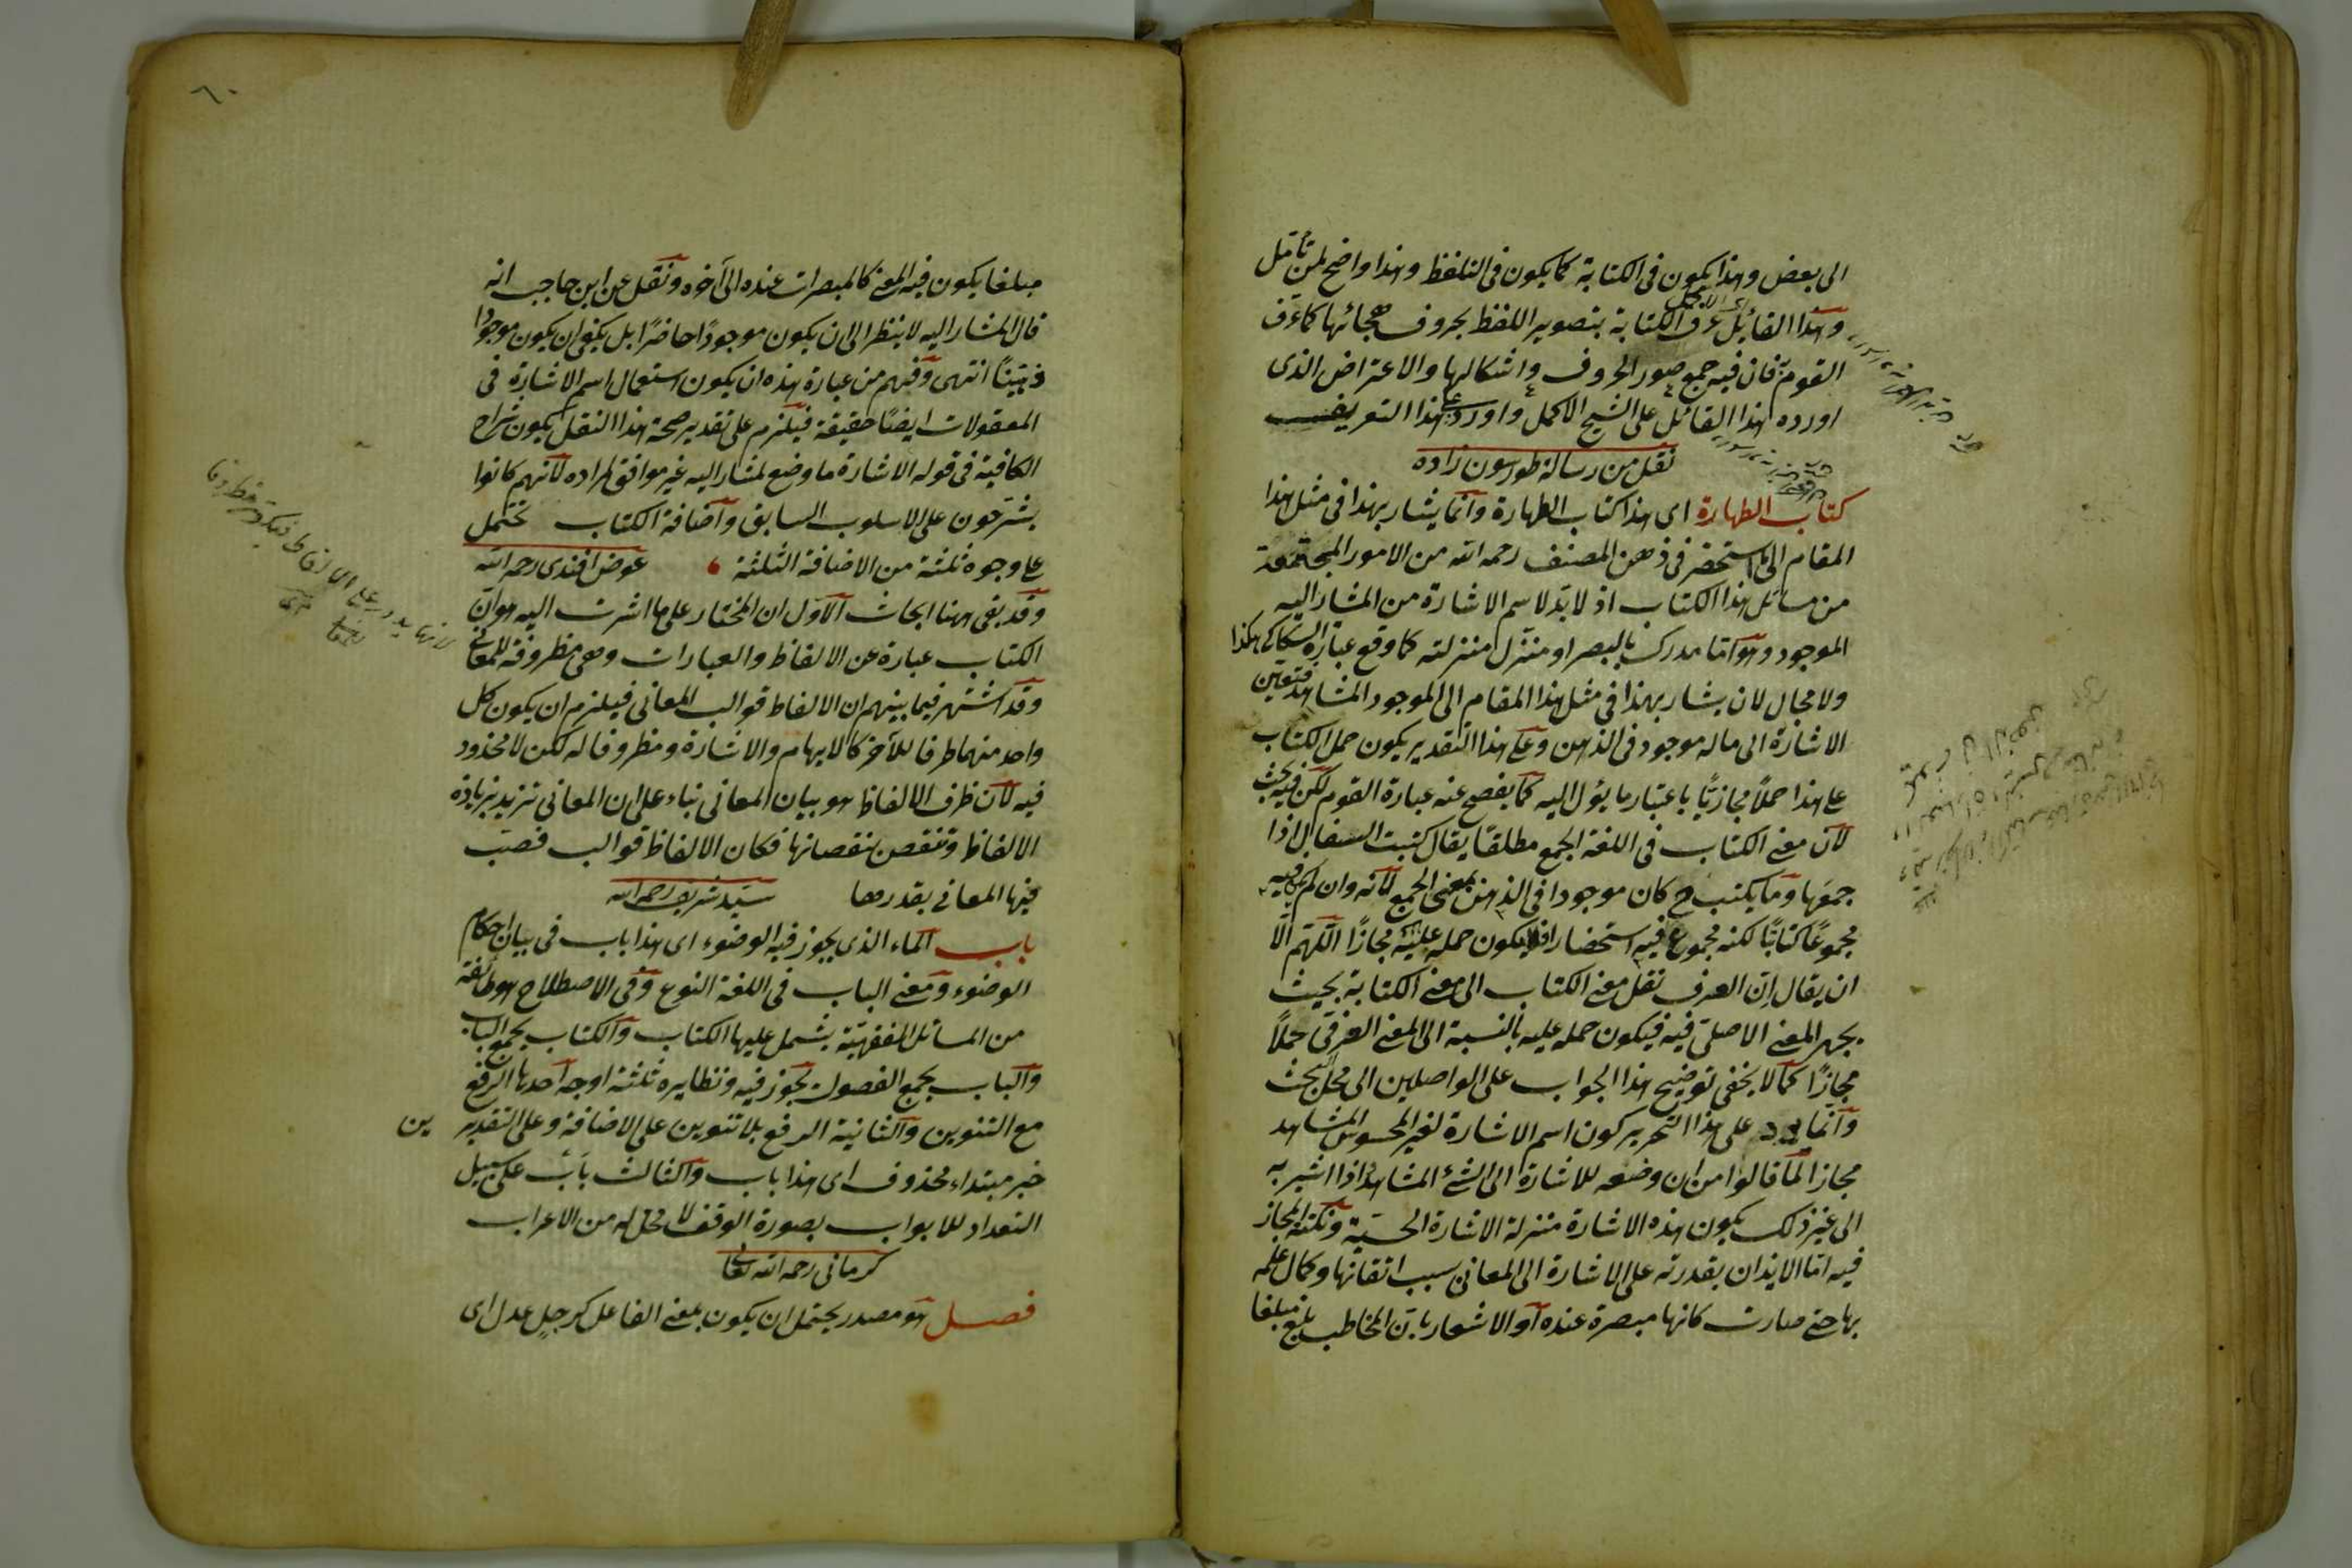 الى بعض وهذا يكون فى الكتابة كما يكون فى التلفظ وهذا واضح لمن تأمل
وهذا القائل عرف الكتابة بتصوير اللفظ بحروف هجائها كما عرف
القوم فان فيه جمع صور الحروف واشكالها والاعتراض الذى
اورده هذا القائل على الشيخ الاكمل واورد على هذا التعريف
نقل من رسالة طورسون زاده
كتاب الطهارة اى هذا كتاب الطهارة وانما يشار بهذا فى مثل هذا
المقام الى ما استحضر فى ذهن المصنف رحمه الله من الامور المجتمعة
من مسائل هذا الكتاب اذ لا بد لاسم الاشارة من المشار اليه
الموجود وهو اما مدرك بالبصر او منزل منزلته كما وقع عبارة السكاكى هكذا
ولا مجال لان يشار بهذا فى مثل هذا المقام الى الموجود المشاهد فتعين
الاشارة الى ماله موجود فى الذهن وعلى هذا التقدير يكون حمل الكتاب
على هذا حملاً مجازيًّا باعتبار ما يؤل اليه كما يفصح عنه عبارة القوم لكن فيه بحث
لان معنى الكتاب فى اللغة الجمع مطلقًا يقال كتبت السفال اذا
جمعها وما يكتب ح كان موجودا فى الذهن بمعنى الجمع لانه وان لم يكن فيه
مجموعًا كتابًا لكنه مجموع فيه استحضارا فلا يكون حمله عليه مجازًا اللهم الا
ان يقال ان العرف نقل معنى الكتاب الى معنى الكتابة بحيث
يهجر المعنى الاصلى فيه فيكون حمله عليه بالنسبة الى المعنى العرفى حملاً
مجازًا كما لا يخفى توضيح هذا الجواب على الواصلين الى محل البحث
وانما يرد على هذا التحرير كون اسم الاشارة لغير المحسوس المشاهد
مجازا لما قالوا من ان وضعه للاشارة الى الشئ المشاهد اذا اشير به
الى غير ذلك يكون هذه الاشارة منزلة الاشارة الحسية ونكتة المجاز
فيه اما الايذان بقدرته على الاشارة الى المعانى بسبب اتقانها وكمال علمه
بها حتى صارت كانها مبصرة عنده او الاشعار بان المخاطب بلغ مبلغا
٦٠
مبلغا يكون فيه المعنى كالمبصرات عنده الى آخره ونقل عن ابن حاجب انه
قال المشار اليه لا ينظر الى ان يكون موجودًا حاضرًا بل يكفى ان يكون موجودا
ذهنيًّا انتهى وفهم من عبارة هذه ان يكون استعمال اسم الاشارة فى
المعقولات ايضًا حقيقة فيلزم على تقدير صحة هذا النقل ان يكون شراح
الكافية فى قوله الاشارة ما وضع لمشار اليه غير موافق لمراده لانهم كانوا
يشرحون على الاسلوب السابق واضافة الكتاب تحتمل
على وجوه ثلثة من الاضافة الثلثة عوض افندى رحمه الله
وقد بقى ههنا ابحاث الاول ان المختار على ما اشرت اليه هو ان
الكتاب عبارة عن الالفاظ والعبارات وهى مظروفة للمعانى
وقد اشتهر فيما بينهم ان الالفاظ قوالب المعانى فيلزم ان يكون كل
واحد منهما ظرفا للآخر كالابهام والاشارة ومظروفا له لكن لا محذور
فيه لان ظرف الالفاظ هو بيان المعانى بناء على ان المعانى تزيد بزيادة
الالفاظ وتنقص بنقصانها فكان الالفاظ قوالب فصب
فيها المعانى بقدرها سيد شريف رحمه الله
باب الماء الذى يجوز فيه الوضوء اى هذا باب فى بيان احكام
الوضوء ومعنى الباب فى اللغة النوع وفى الاصطلاح هو طائفة
من المسائل الفقهيّة يشمل عليها الكتاب والكتاب يجمع الباب
والباب يجمع الفصول يجوز فيه ونظايره ثلثة اوجه احدها الرفع
مع التنوين والثانية الرفع بلا تنوين على الاضافة وعلى التقدير ين
خبر مبتداء محذوف اى هذا باب والثالث باب على سبيل
التعداد للابواب بصورة الوقف لا محل له من الاعراب
كرمانى رحمه الله تعالى
فصل هو مصدر يحتمل ان يكون بمعنى الفاعل كرجل عدل اى